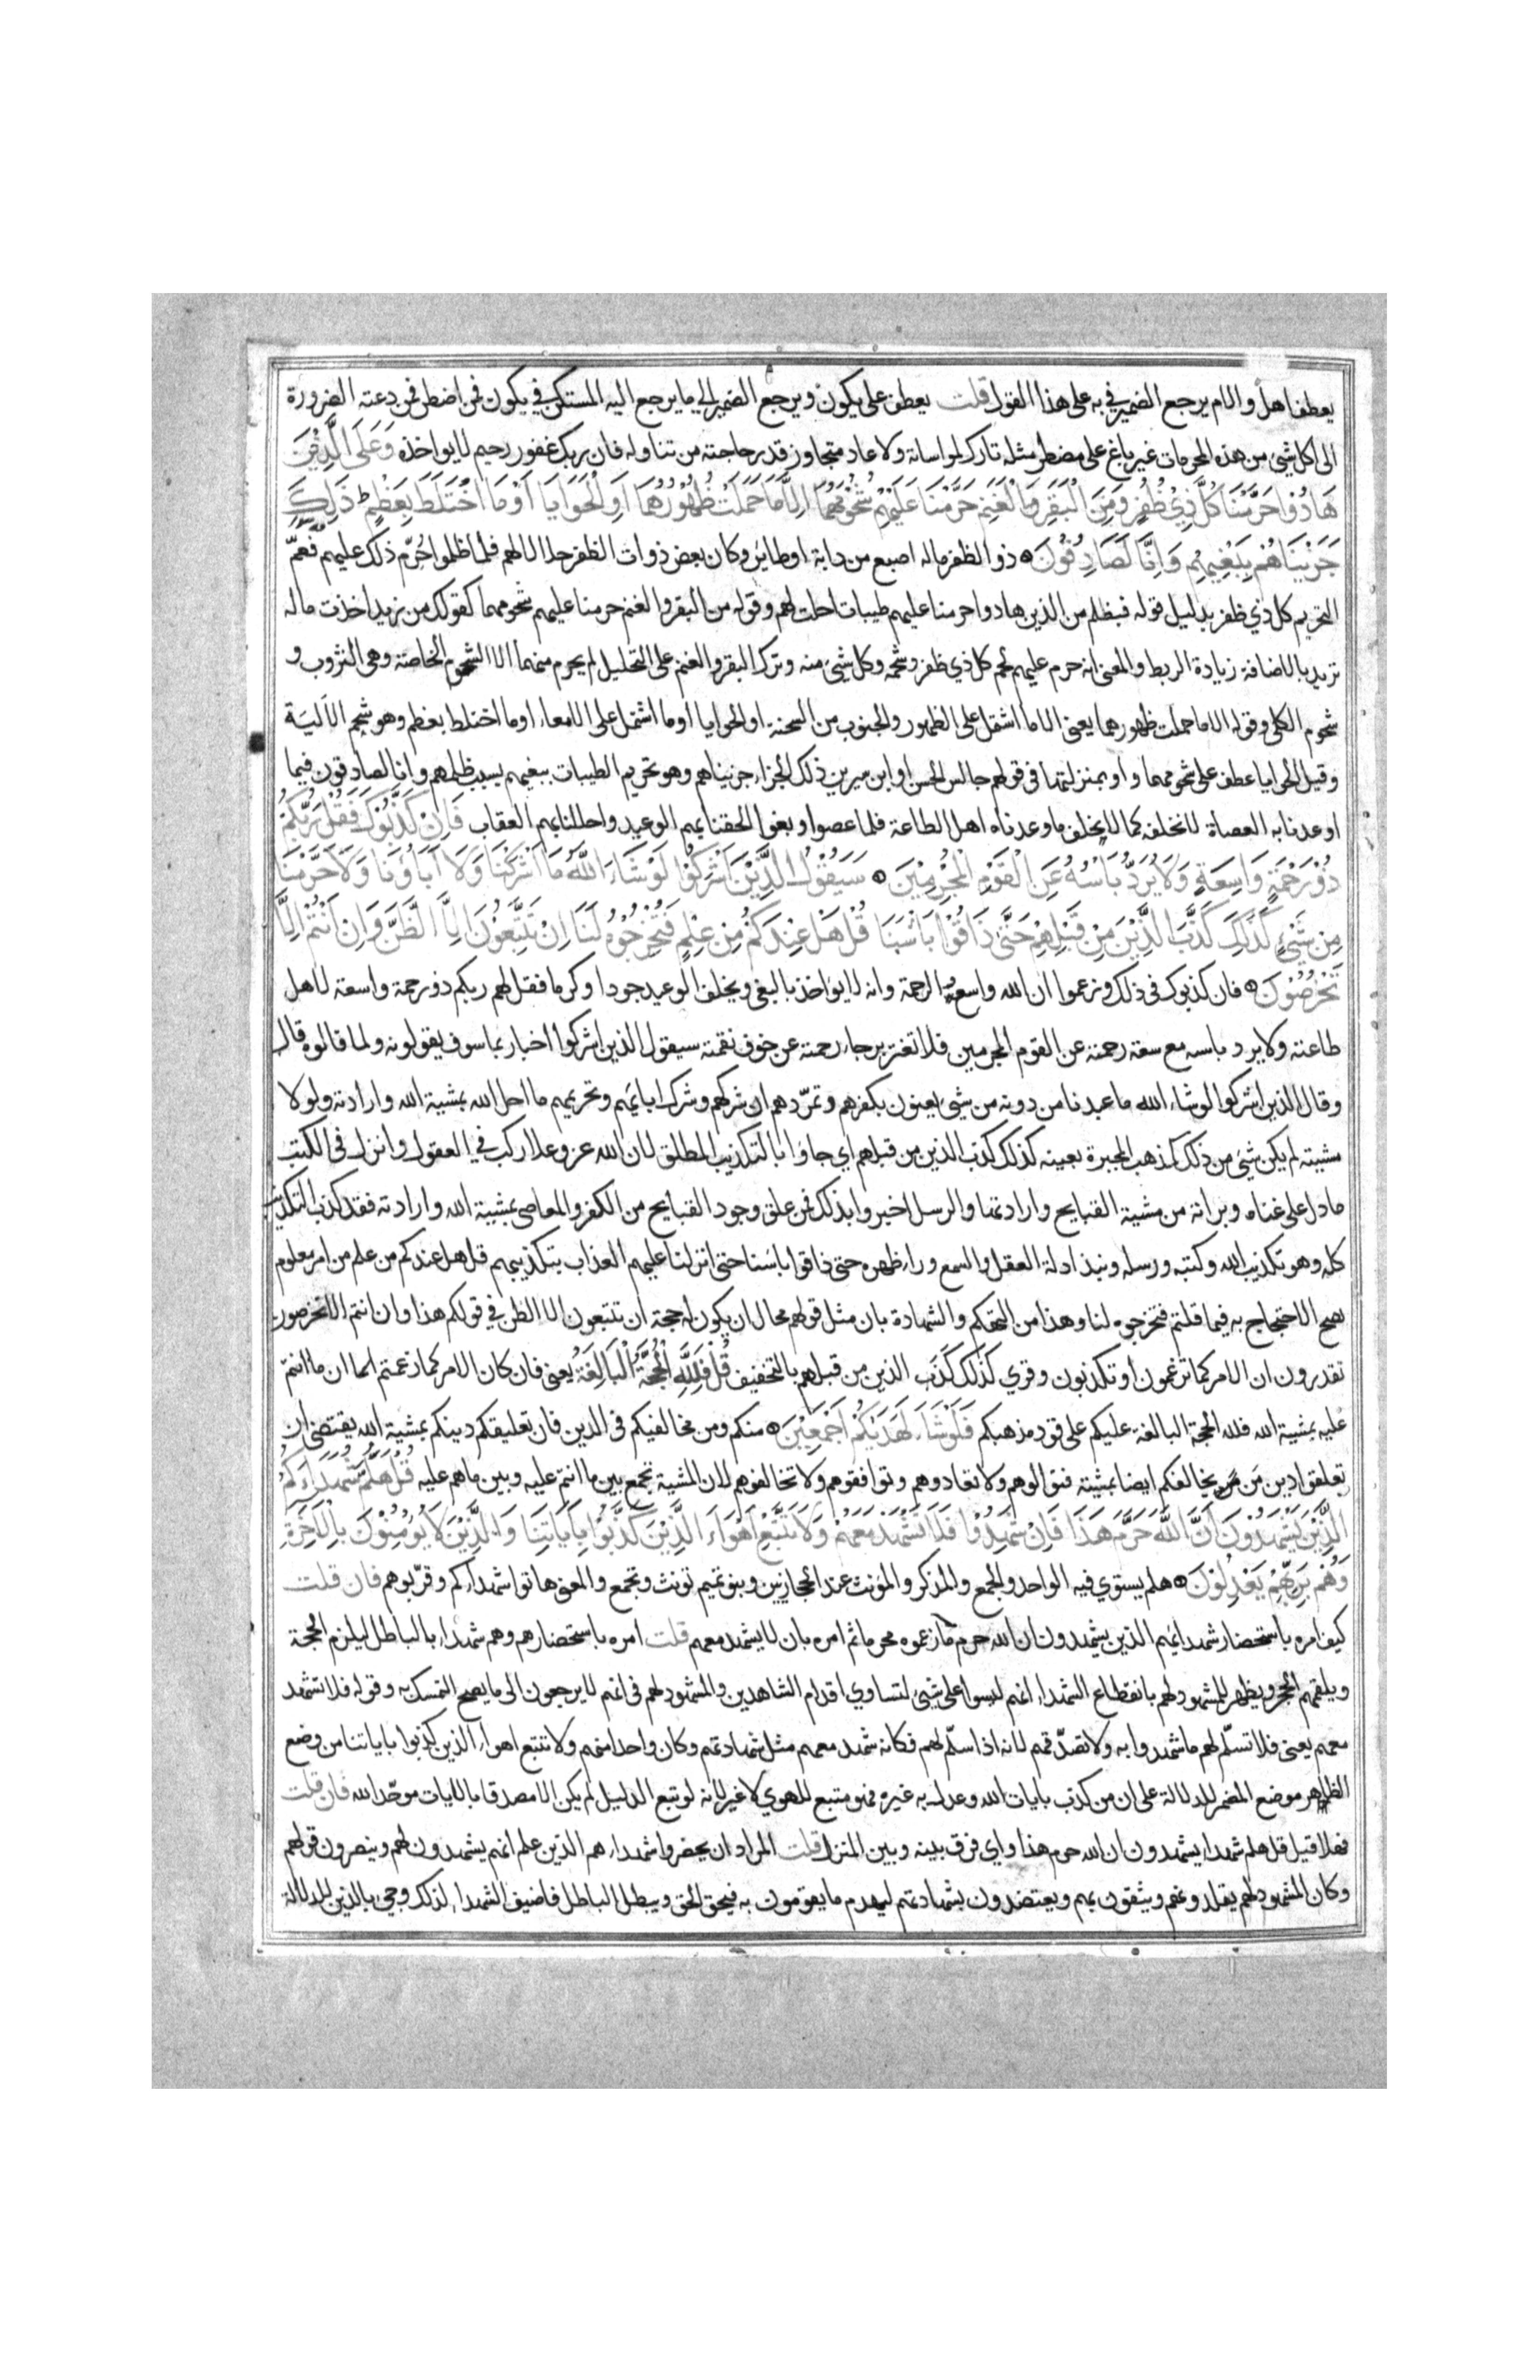 يعطف اهل والام يرجع الضمير في به على هذا القول قلت يعطف على يكون ويرجع الضمير الى ما يرجع اليه المستكن في يكون فمن اضطر فمن دعته الضرورة
الى اكل شيئ من هذه المحرمات غير باغ على مضطر مثله تارك لمواساته ولا عاد متجاوز قدر حاجته من تناوله فان ربك غفور رحيم لا يواخذه وَعَلَى الَّذِيْنَ
هَادُوْا حَرَّمْنَا كُلَّ ذِيْ ظُفُرٍ وَمِنَ الْبَقَرِ وَالْغَنَمِ حَرَّمْنَا عَلَيْهِمْ شُحُوْمَهُمَا اِلَّا مَا حَمَلَتْ ظُهُوْرُهُمَا اَوِ الْحَوَايَا اَوْ مَا اخْتَلَطَ بِعَظْمٍ ط ذَلِكَ
جَزَيْنَاهُمْ بِبَغْيِهِمْ وَاِنَّا لَصَادِقُوْنَ ذو الظفر ماله اصبع من دابة او طاير وكان بعض ذوات الظفر حلالا لهم فلما ظلموا حُرّم ذلك عليهم فعمّ
التحريم كل ذي ظفر بدليل قوله فبظلم من الذين هادوا حرمنا عليهم طيبات احلت لهم وقوله من البقر والغنم حرمنا عليهم شحومهما كقولك من زيد اخذت ماله
تريد بالاضافة زيادة الربط والمعنى انه حرم عليهم لحم كل ذي ظفر وشحمه وكل شيئ منه وترك البقر والغنم على التحليل لم يحرم منهما الا الشحوم الخاصة وهي الثروب و
شحوم الكلى وقوله الا ما حملت ظهورهما يعني الا ما اشتمل على الظهور والجنوب من السحنة او الحوايا او ما اشتمل على الامعاء او ما اختلط بعظم وهو شحم الالية
وقيل الحوايا عطف على شحومهما واو بمنزلتها في قولهم جالس الحسن او ابن سيرين ذلك الجزاء جزيناهم وهو تحريم الطيبات ببغيهم بسبب ظلمهم وانا لصادقون فيما
اوعدنا به العصاة لا نخلفه كما لا يخلف ما وعدناه اهل الطاعة فلما عصوا وبغوا الحقنا بهم الوعيد واحللنا بهم العقاب فَاِنْ كَذَّبُوْكَ فَقُلْ رَبُّكُمْ
ذُوْ رَحْمَةٍ وَاسِعَةٍ وَلَا يُرَدُّ بَاْسُهُ عَنِ الْقَوْمِ الْمُجْرِمِيْنَ سَيَقُوْلُ الَّذِيْنَ اَشْرَكُوْا لَوْ شَاءَ اللهُ مَا اَشْرَكْنَا وَلَا اٰبَاؤُنَا وَلَا حَرَّمْنَا
مِنْ شَيْئٍ كَذَلِكَ كَذَّبَ الَّذِيْنَ مِنْ قَبْلِهِمْ حَتَّى ذَاقُوْا بَاْسَنَا قُلْ هَلْ عِنْدَكُمْ مِنْ عِلْمٍ فَتُخْرِجُوْهُ لَنَا اِنْ تَتَّبِعُوْنَ اِلَّا الظَّنَّ وَاِنْ اَنْتُمْ اِلَّا
تَخْرُصُوْنَ فان كذبوك في ذلك وزعموا ان الله واسع الرحمة وانه لا يواخذ بالبغي ويخلف الوعيد جودا وكرما فقل لهم ربكم ذو رحمة واسعة لاهل
طاعته ولا يرد باسه مع سعة رحمته عن القوم المجرمين فلا تغتر برجاء رحمته عن خوف نقمته سيقول الذين اشركوا اخبار بما سوف يقولونه ولما قالوه قال
وقال الذين اشركوا لو شاء الله ما عبدنا من دونه من شيئ يعنون بكفرهم وتمرّدهم ان شركهم وشرك ابايهم وتحريمهم ما احل الله بمشية الله وارادته ولولا
مشيته لم يكن شيئ من ذلك كمذهب المجبرة بعينه كذلك كذب الذين من قبلهم اي جاؤا بالتكذيب المطلق لان الله عز وعلا ركب في العقول وانزل في الكتب
ما دل على غناه وبراته من مشية القبايح وارادتها والرسل اخبروا بذلك فمن علق وجود القبايح من الكفر والمعاصي بمشية الله وارادته فقد كذب التكذيب
كله وهو تكذيب الله وكتبه ورسله ونبذ ادلة العقل والسمع وراء ظهره حتى ذاقوا باسنا حتى انزلنا عليهم العذاب بتكذيبهم قل هل عندكم من علم من امر معلوم
يصح الاحتجاج به فيما قلتم فتخرجوه لنا وهذا من التهكم والشهادة بان مثل قولهم محال ان يكون له حجة ان تتبعون الا الظن في قولكم هذا وان انتم الا تخرصون
تقدرون ان الامر كما تزعمون او تكذبون وقري كذلك كَذَب الذين من قبلهم بالتخفيف قُلْ فَلِلّٰهِ الْحُجَّةُ الْبَالِغَةُ يعني فان كان الامر كما زعمتم انما ان ما انتم
عليه بمشية الله فلله الحجة البالغة عليكم على قود مذهبكم فَلَوْ شَاءَ لَهَدٰىكُمْ اَجْمَعِيْنَ منكم ومن مخالفيكم في الدين فان تعليقكم دينكم بمشية الله يقتضي ان
تعلقوا دين من يخالفكم ايضا بمشيته فتوالوهم ولا تعادوهم وتوافقوهم ولا تخالفوهم لان المشية تجمع بين ما انتم عليه وبين ما هم عليه قُلْ هَلُمَّ شُهَدَاءَكُمُ
الَّذِيْنَ يَشْهَدُوْنَ اَنَّ اللهَ حَرَّمَ هَذَا فَاِنْ شَهِدُوْا فَلَا تَشْهَدْ مَعَهُمْ وَلَا تَتَّبِعْ اَهْوَاءَ الَّذِيْنَ كَذَّبُوْا بِاٰيَاتِنَا وَالَّذِيْنَ لَا يُؤْمِنُوْنَ بِالْاٰخِرَةِ
وَهُمْ بِرَبِّهِمْ يَعْدِلُوْنَ هلم يستوي فيه الواحد والجمع والمذكر والمؤنث عند الحجازيين وبنو تميم تونث وتجمع والمعنى هاتوا شهداءكم وقرّبوهم فان قلت
كيف امره باستحضار شهدائهم الذين يشهدون ان الله حرم ما زعموه محرما ثم امره بان لا يشهد معهم قلت امره باستحضارهم وهم شهداء بالباطل ليلزم الحجة
ويلقمهم الحجر ويظهر للمشهود لهم بانقطاع الشهداء انهم ليسوا على شيئ لتساوي اقدام الشاهدين والمشهود لهم في انهم لا يرجعون الى ما يصح التمسك به وقوله فلا تشهد
معهم يعني فلا تسلّم لهم ما شهدوا به ولا تصدّقهم لانه اذا سلّم لهم فكانه شهد معهم مثل شهادتهم وكان واحدا منهم ولا تتبع اهواء الذين كذبوا باياتنا من وضع
الظاهر موضع المضمر للدلالة على ان من كذب بايات الله وعدل به غيره فهو متبع للهوي لا غير لانه لو تبع الدليل لم يكن الا مصدقا بالايات موحّدا لله فان قلت
فهلا قيل قل هلم شهداء يشهدون ان الله حرم هذا واي فرق بينه وبين المنزل قلت المراد ان يحضروا شهداءهم الذين علم انهم يشهدون لهم وينصرون قولهم
وكان المشهود لهم يقلدونهم ويثقون بهم ويعتضدون بشهادتهم ليهدم ما يقومون به فيحق الحق ويبطل الباطل فاضيف الشهداء لذلك وجيء بالذين للدلالة